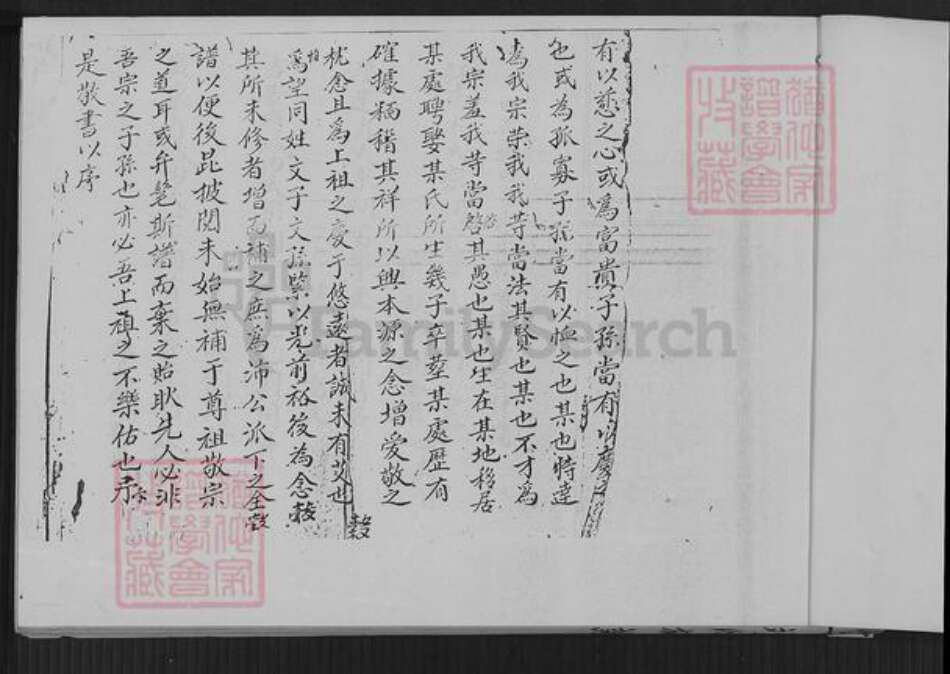 有以慈之心或為富貴子孫當有以慶之
也或為孤寡子孫當有以恤之也某也特達
為我宗榮我我等當法其賢也某也不才為
我宗羞我等當啓其愚也某也生在某地移居
某處聘娶某氏所生幾子卒塟某處歷有
確據稱稽其祥所以興本源之念增愛敬之
枕念且為上祖之慶于悠遠者誠未有艾也
為望同姓文子文孫緊以光前裕後為念
其所未修者增而補之庶為沛公派下之全
譜以便後昆披閱未始無補于尊祖敬宗
之道耳或弁髦斯譜而棄之貽耻先人必非
吾宗之子孫也亦必吾上祖之不樂佑也予
是敬書以序
譜學會
收藏
FamilySearch